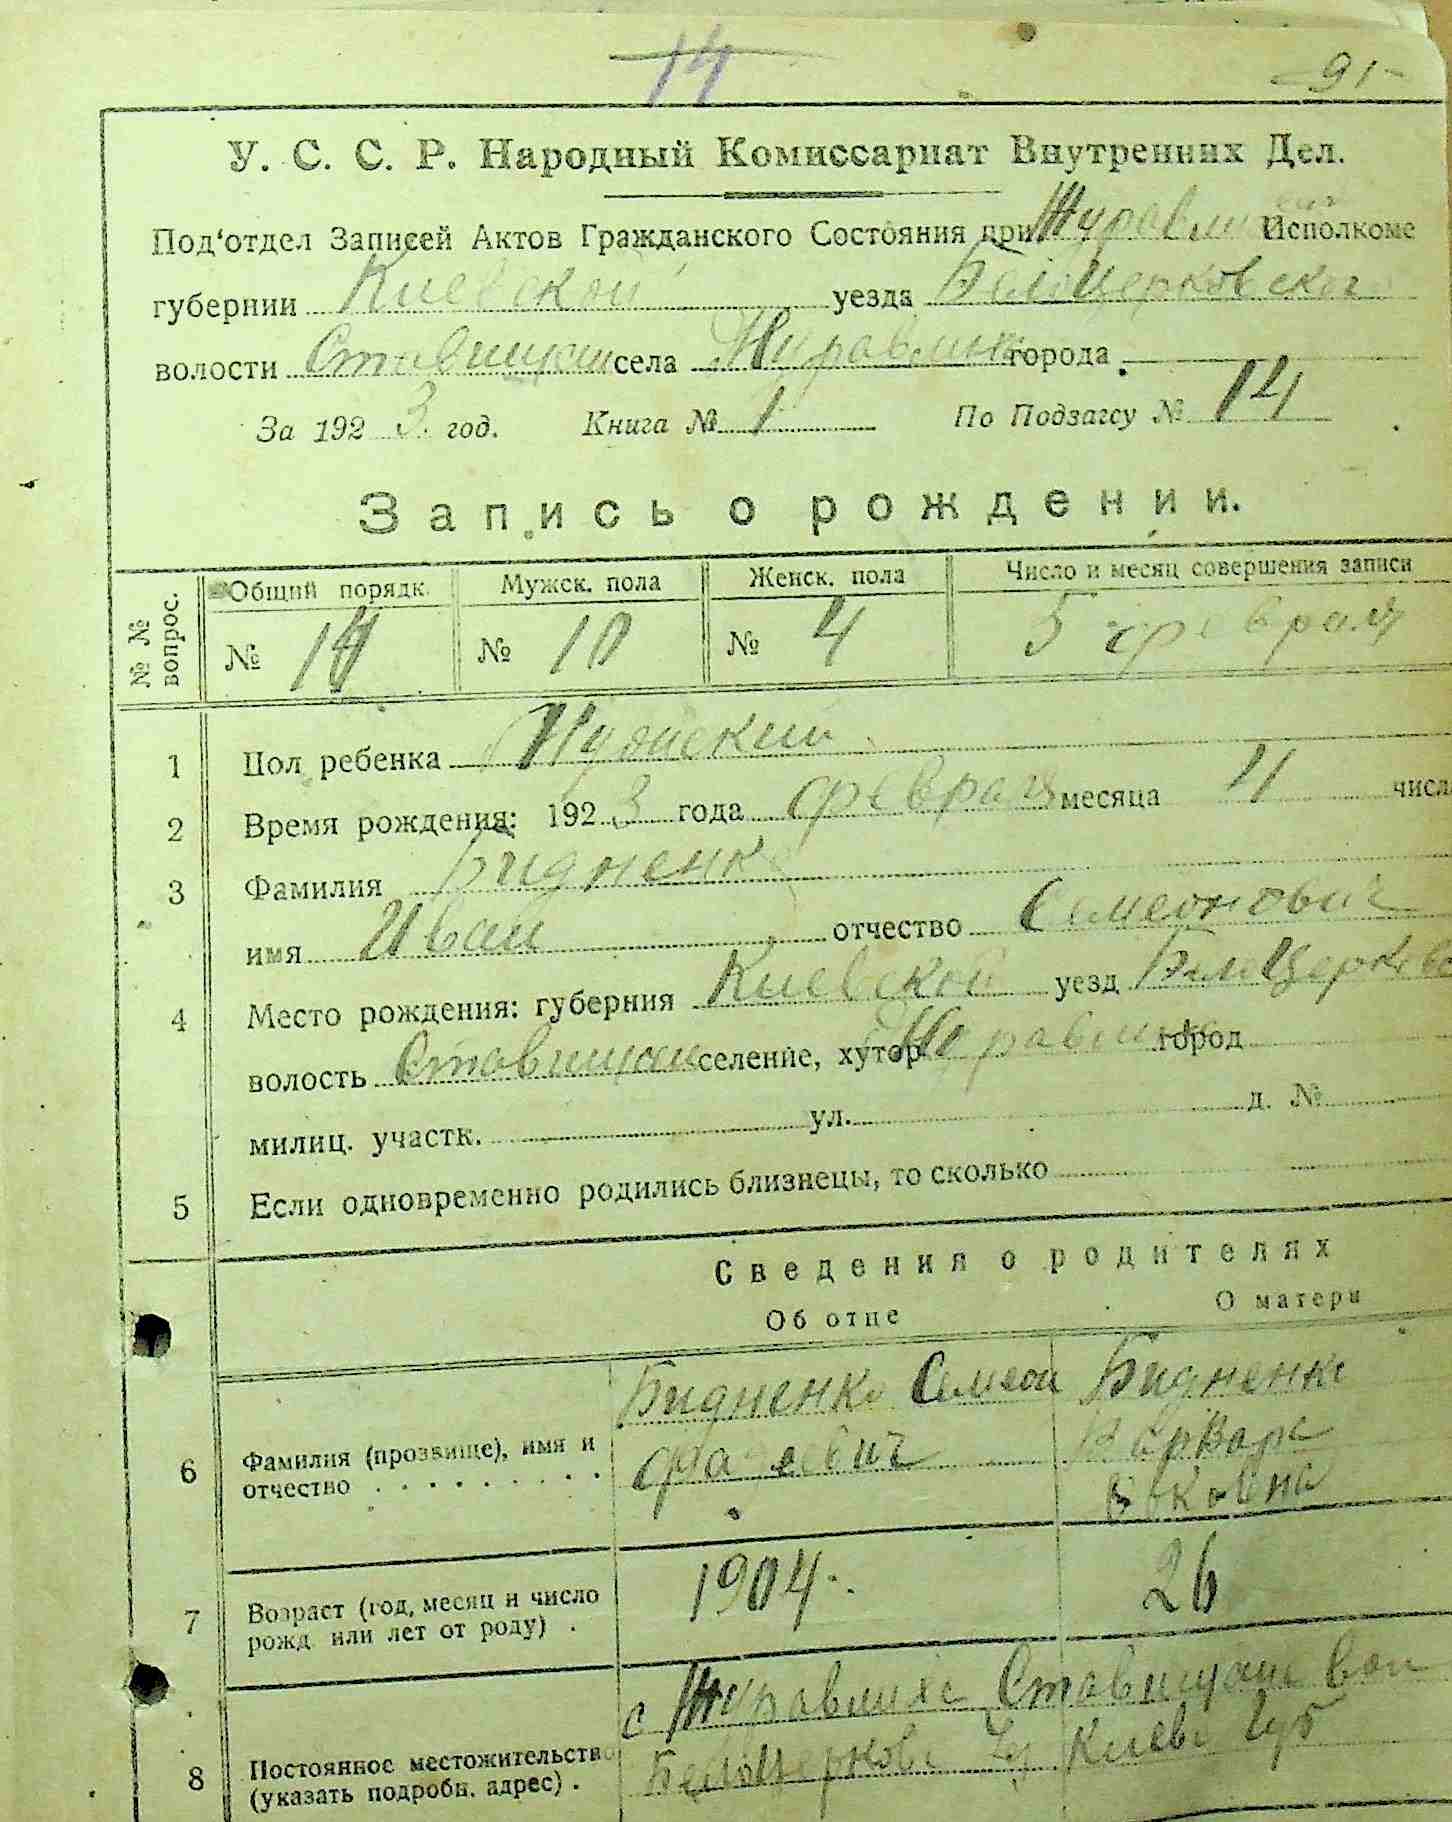 14
91
У. С. С. Р. Народный Комиссариат Внутренних Дел.
Под'отдел Записей Актов Гражданского Состояния при Исполкоме
губернии Киевской уезда БелоЦерковского
волости села города
За 1923 год. Книга № 1 По Подзагсу № 14
Запись о рождении.
№ № вопрос.
Общий порядк. Мужск. пола Женск. пола Число и месяц совершения записи
№ 14 № 10 № 4 5 февраля
1 Пол ребенка Мужский
2 Время рождения: 1923 года февраля месяца 4 числ
3 Фамилия Бидненко
имя Иван отчество Семеонович
4 Место рождения: губерния Киевской уезд БелоЦерково
волость селение, хутор город
милиц. участк. ул. д. №
5 Если одновременно родились близнецы, то сколько
Сведения о родителях
Об отце О матери
6 Фамилия (прозвище), имя и отчество
Бидненко Семеон
Бидненко
Варвара
7 Возраст (год, месяц и число рожд. или лет от роду) . 1904 26
8 Постоянное местожительство (указать подробн. адрес) .
с Журавлихе
БелоЦеркове у Киев губ